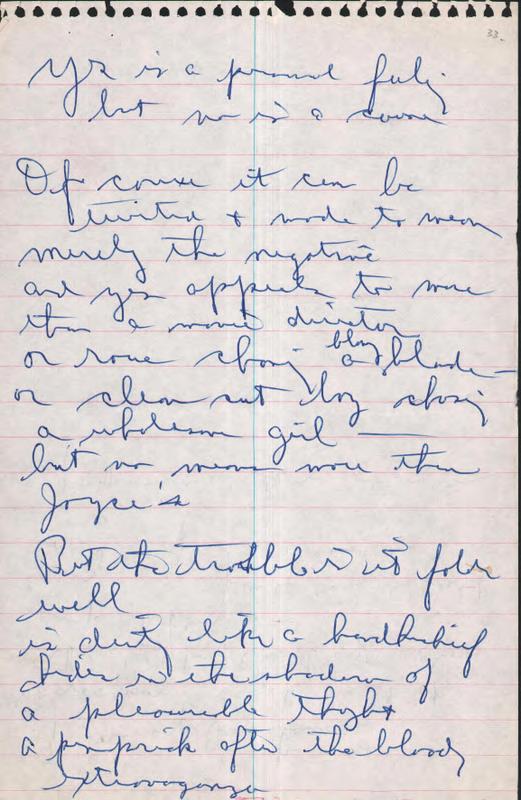 33.
Yes is a personal
but no is a
Of course it can be
twisted + made to mean
merely the negative
and yes appeals to more
than a movie director
or chasing a blonde —
or clean cut boy chasing
a wholesome girl —
but no means more than
Joyce's
But the trouble is it folds
well
is dirty like a handkerchief
hides in the shadow of
a pleasurable thought
a pin prick after the bloody
extravaganza